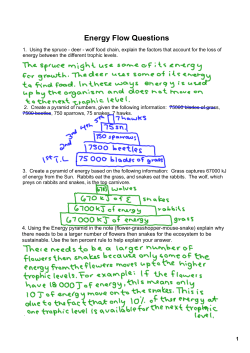 Energy Flow Questions
1. Using the spruce - deer - wolf food chain, explain the factors that account for the loss of
energy between the different trophic levels.
The spruce might use some of its energy
for growth. The deer uses some of its energy
to find food. In these ways energy is used
up by the organism and does not move on
to the next trophic level.
2. Create a pyramid of numbers, given the following information: 75000 blades of grass,
7500 beetles, 750 sparrows, 75 snakes, 7 hawks.
5th 7 hawks
4th 75 sn
3rd 750 sparrows
2nd 7500 beetles
1st T.L 75 000 blades of grass
3. Create a pyramid of energy based on the following information: Grass captures 67000 kJ
of energy from the Sun. Rabbits eat the grass, and snakes eat the rabbits. The wolf, which
preys on rabbits and snakes, is the top carnivore.
67kJ wolves
670 kJ of E snakes
6700kJ of energy rabbits
67000 kJ of energy grass
4. Using the Energy pyramid in the note (flower-grasshopper-mouse-snake) explain why
there needs to be a larger number of flowers then snakes for the ecosystem to be
sustainable. Use the ten percent rule to help explain your answer.
There needs to be a larger number of
flowers then snakes because only some of the
energy from the flowers moves up to the higher
trophic levels. For example: If the flowers
have 10 000 J of energy, this means only
10 J of energy move on to the snakes. This is
due to the fact that only 10% of the energy at
one trophic level is available for the next trophic
level.
1